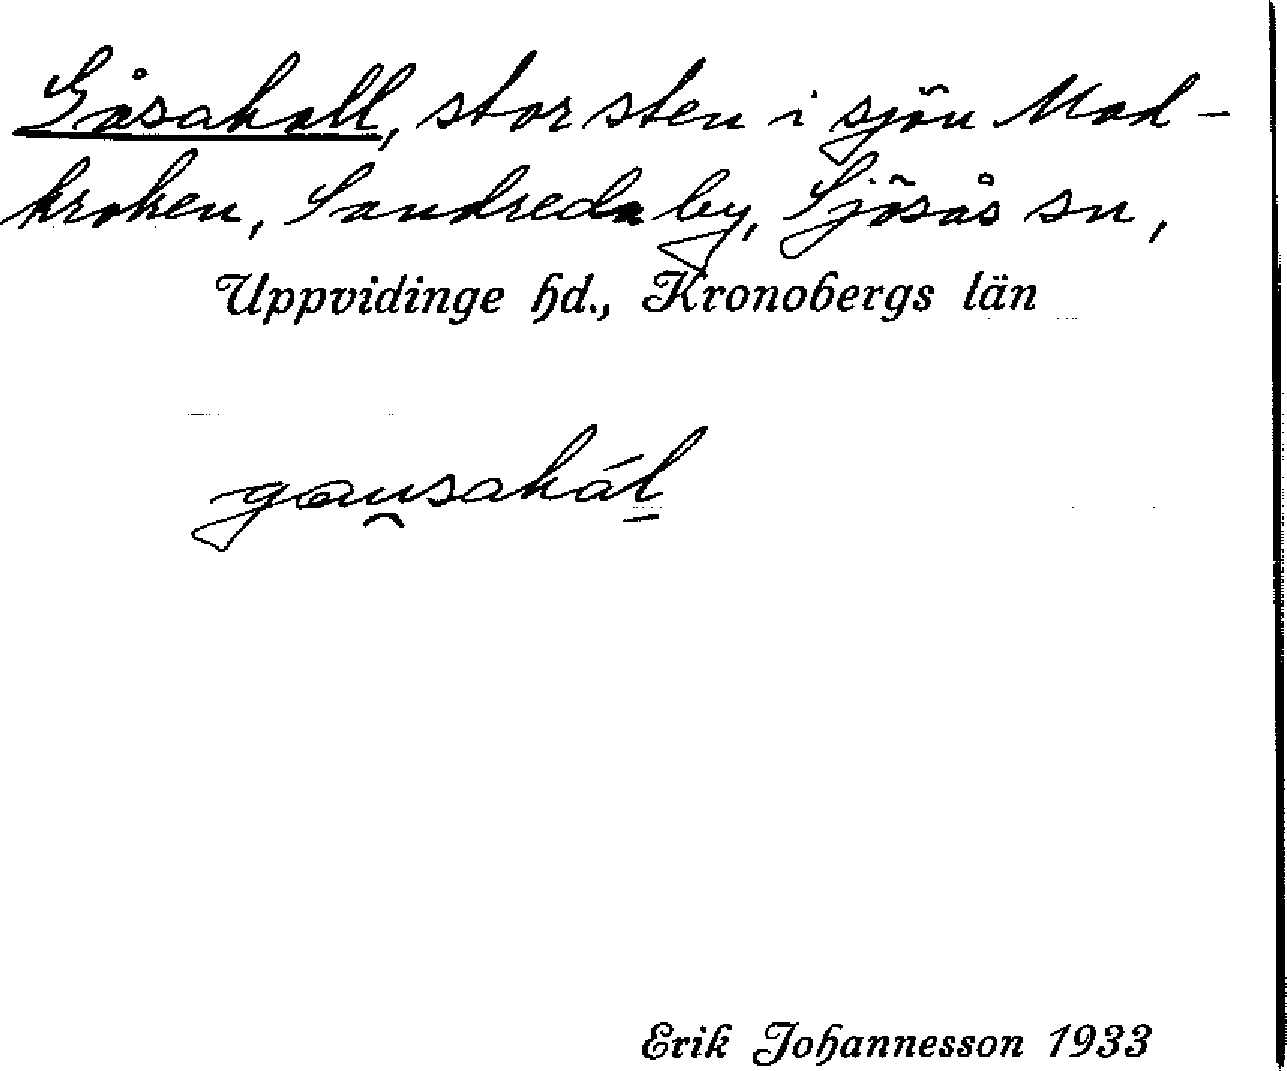 Gåsahall, stor sten i sjön Mad-
kroken, Sandreda by, Sjösås sn,
Uppvidinge hd., Kronobergs län
gau̯sahál̲
Erik Johannesson 1933